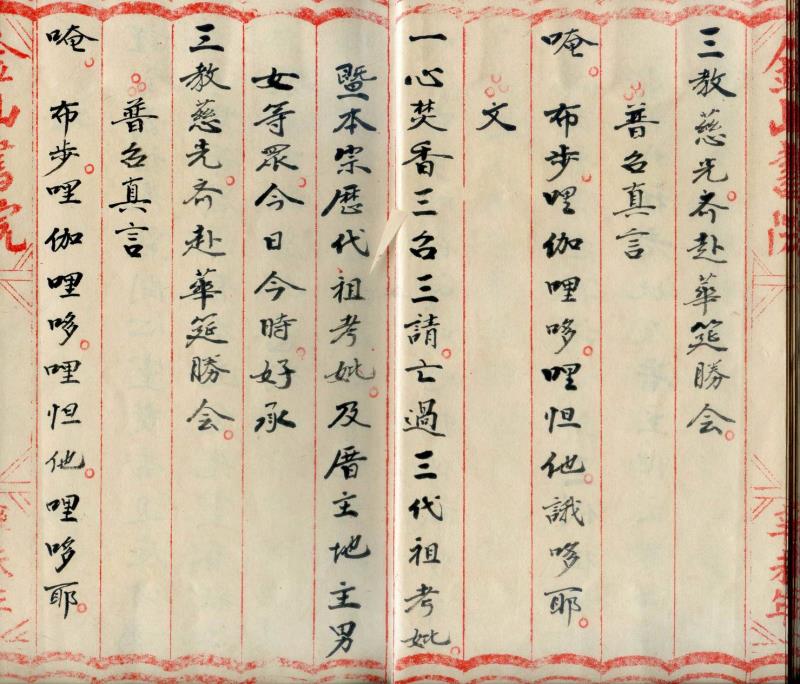 三教慈光齐赴華筵勝会。
普召真言
唵。布步哩伽哩哆哩怛他。誐哆耶。
文
一心焚香三召三請。亡過三代祖考妣。
暨本宗歷代祖考妣。及厝主地主男
女等眾。今日今時。好承
三教慈光。齐赴華筵勝会。
普召真言
唵。布步。哩伽哩哆。哩怛他。哩哆耶。